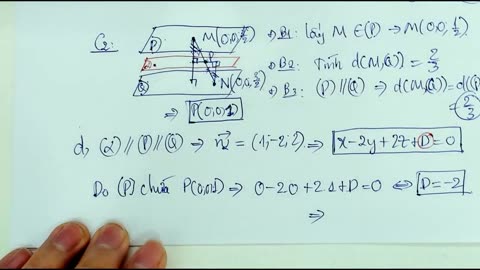 C2:
P)
M(0,0,1/2)
Q)
N(0,0,3/2)
→ B1: lấy M ∈ (P) → M(0,0,1/2)
→ B2: Tính d(M,(Q)) = 2/3
→ B3: (P) // (Q) → d(M,(Q)) = d((P)
= 2/3
⇒ P(0,0,1)
d, (α) // (P) // (Q) ⇒ n⃗ = (1;-2;2) ⇒ x-2y+2z+D=0
Do (P) chứa P(0,0,1) ⇒ 0-2.0+2.1+D=0 ⇔ D=-2
⇒